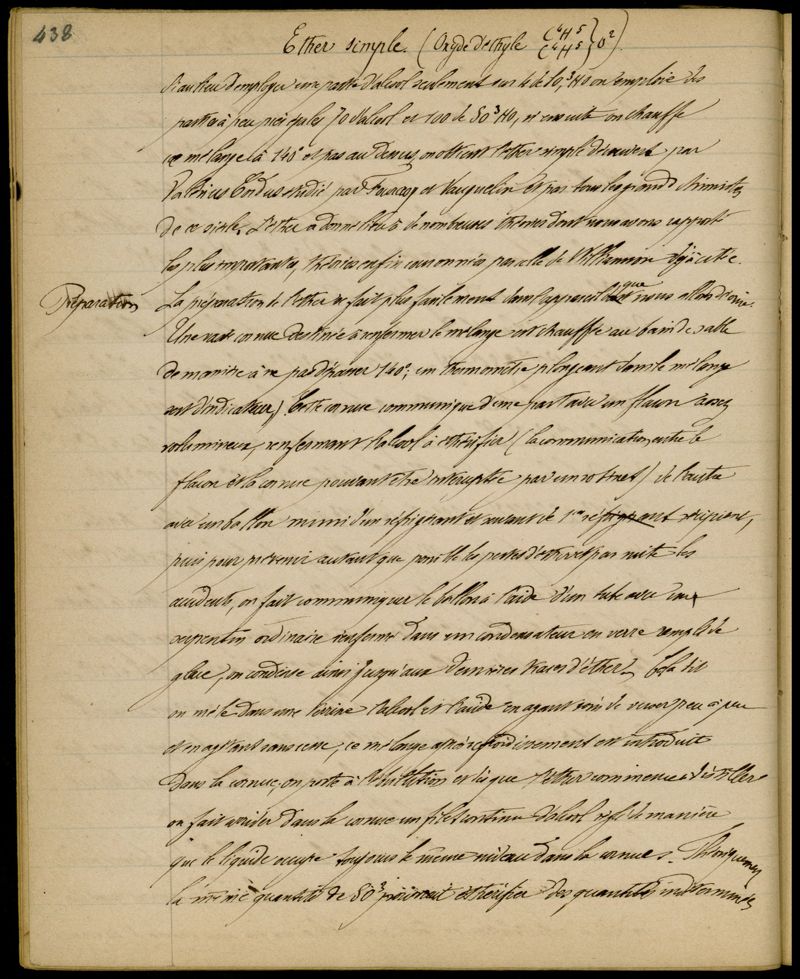 438
Ether simple. (Oxyde d'éthyle C⁴H⁵ C⁴H⁵ } O²).
Si au lieu d'employer une partie d'alcool seulement sur 4 de SO,³HO on emploie des
parties à peu près égales 70 d'alcool et 100 de SO³HO, si ensuite on chauffe
ce mélange là à 140° et pas au dessus, on obtient l'ether simple découvert par
Valérius Cordus étudié par Fourcroy et Vauquelin et par tous les grands chimistes
de ce siècle. L'ether a donné lieu à de nombreuses théories dont nous avons rapporté
les plus importantes, théories enfin couronnées par celle de Williamson déjà citée.
Préparation
La préparation de l'ether se fait plus facilement dans l'appareil que nous allons décrire.
Une vaste cornue destinée à renfermer le mélange est chauffée au bain de sable
de manière à ne pas dépasser 140°; un thermomètre plongeant dans le mélange
sert d'indicateur. Cette cornue communique d'une part avec un flacon assez
volumineux, renfermant l'alcool à éthérifier (la communication entre le
flacon et la cornue pouvant être interceptée par un robinet) de l'autre
avec un ballon muni d'un réfrigérant et servant de 1er réfrigérant récipient,
puis pour prévenir autant que possible les pertes d'ether et par suite les
accidents, on fait communiquer le ballon à l'aide d'un tube avec un
serpentin ordinaire renfermé dans un condensateur en verre rempli de
glace, on condense ainsi jusqu'aux dernières traces d'éther. Cela dit
on mêle dans une terrine l'alcool et l'acide en ayant soin de verser peu à peu
et en agitant sans cesse; ce mélange après refroidissement est introduit
dans la cornue, on porte à l'ébullition et dès que l'ether commence à distiller
on fait arriver dans la cornue un filet continu d'alcool réglé de manière
que le liquide occupe toujours le même niveau dans la cornue. Théoriquement
la même quantité de SO³ pourrait éthérifier des quantités indéterminées